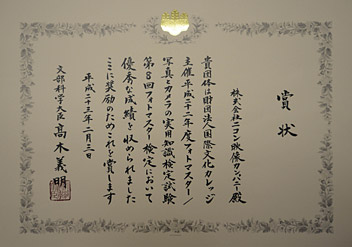 賞状
株式会社ニコン映像カンパニー殿
貴団体は財団法人国際文化カレッジ
主催平成二十二年度フォトマスター/
写真とカメラの実用知識検定試験
第8回フォトマスター検定において
優秀な成績を収められました
ここに奨励のためこれを賞します
平成二十三年二月三日
文部科学大臣 髙木義明